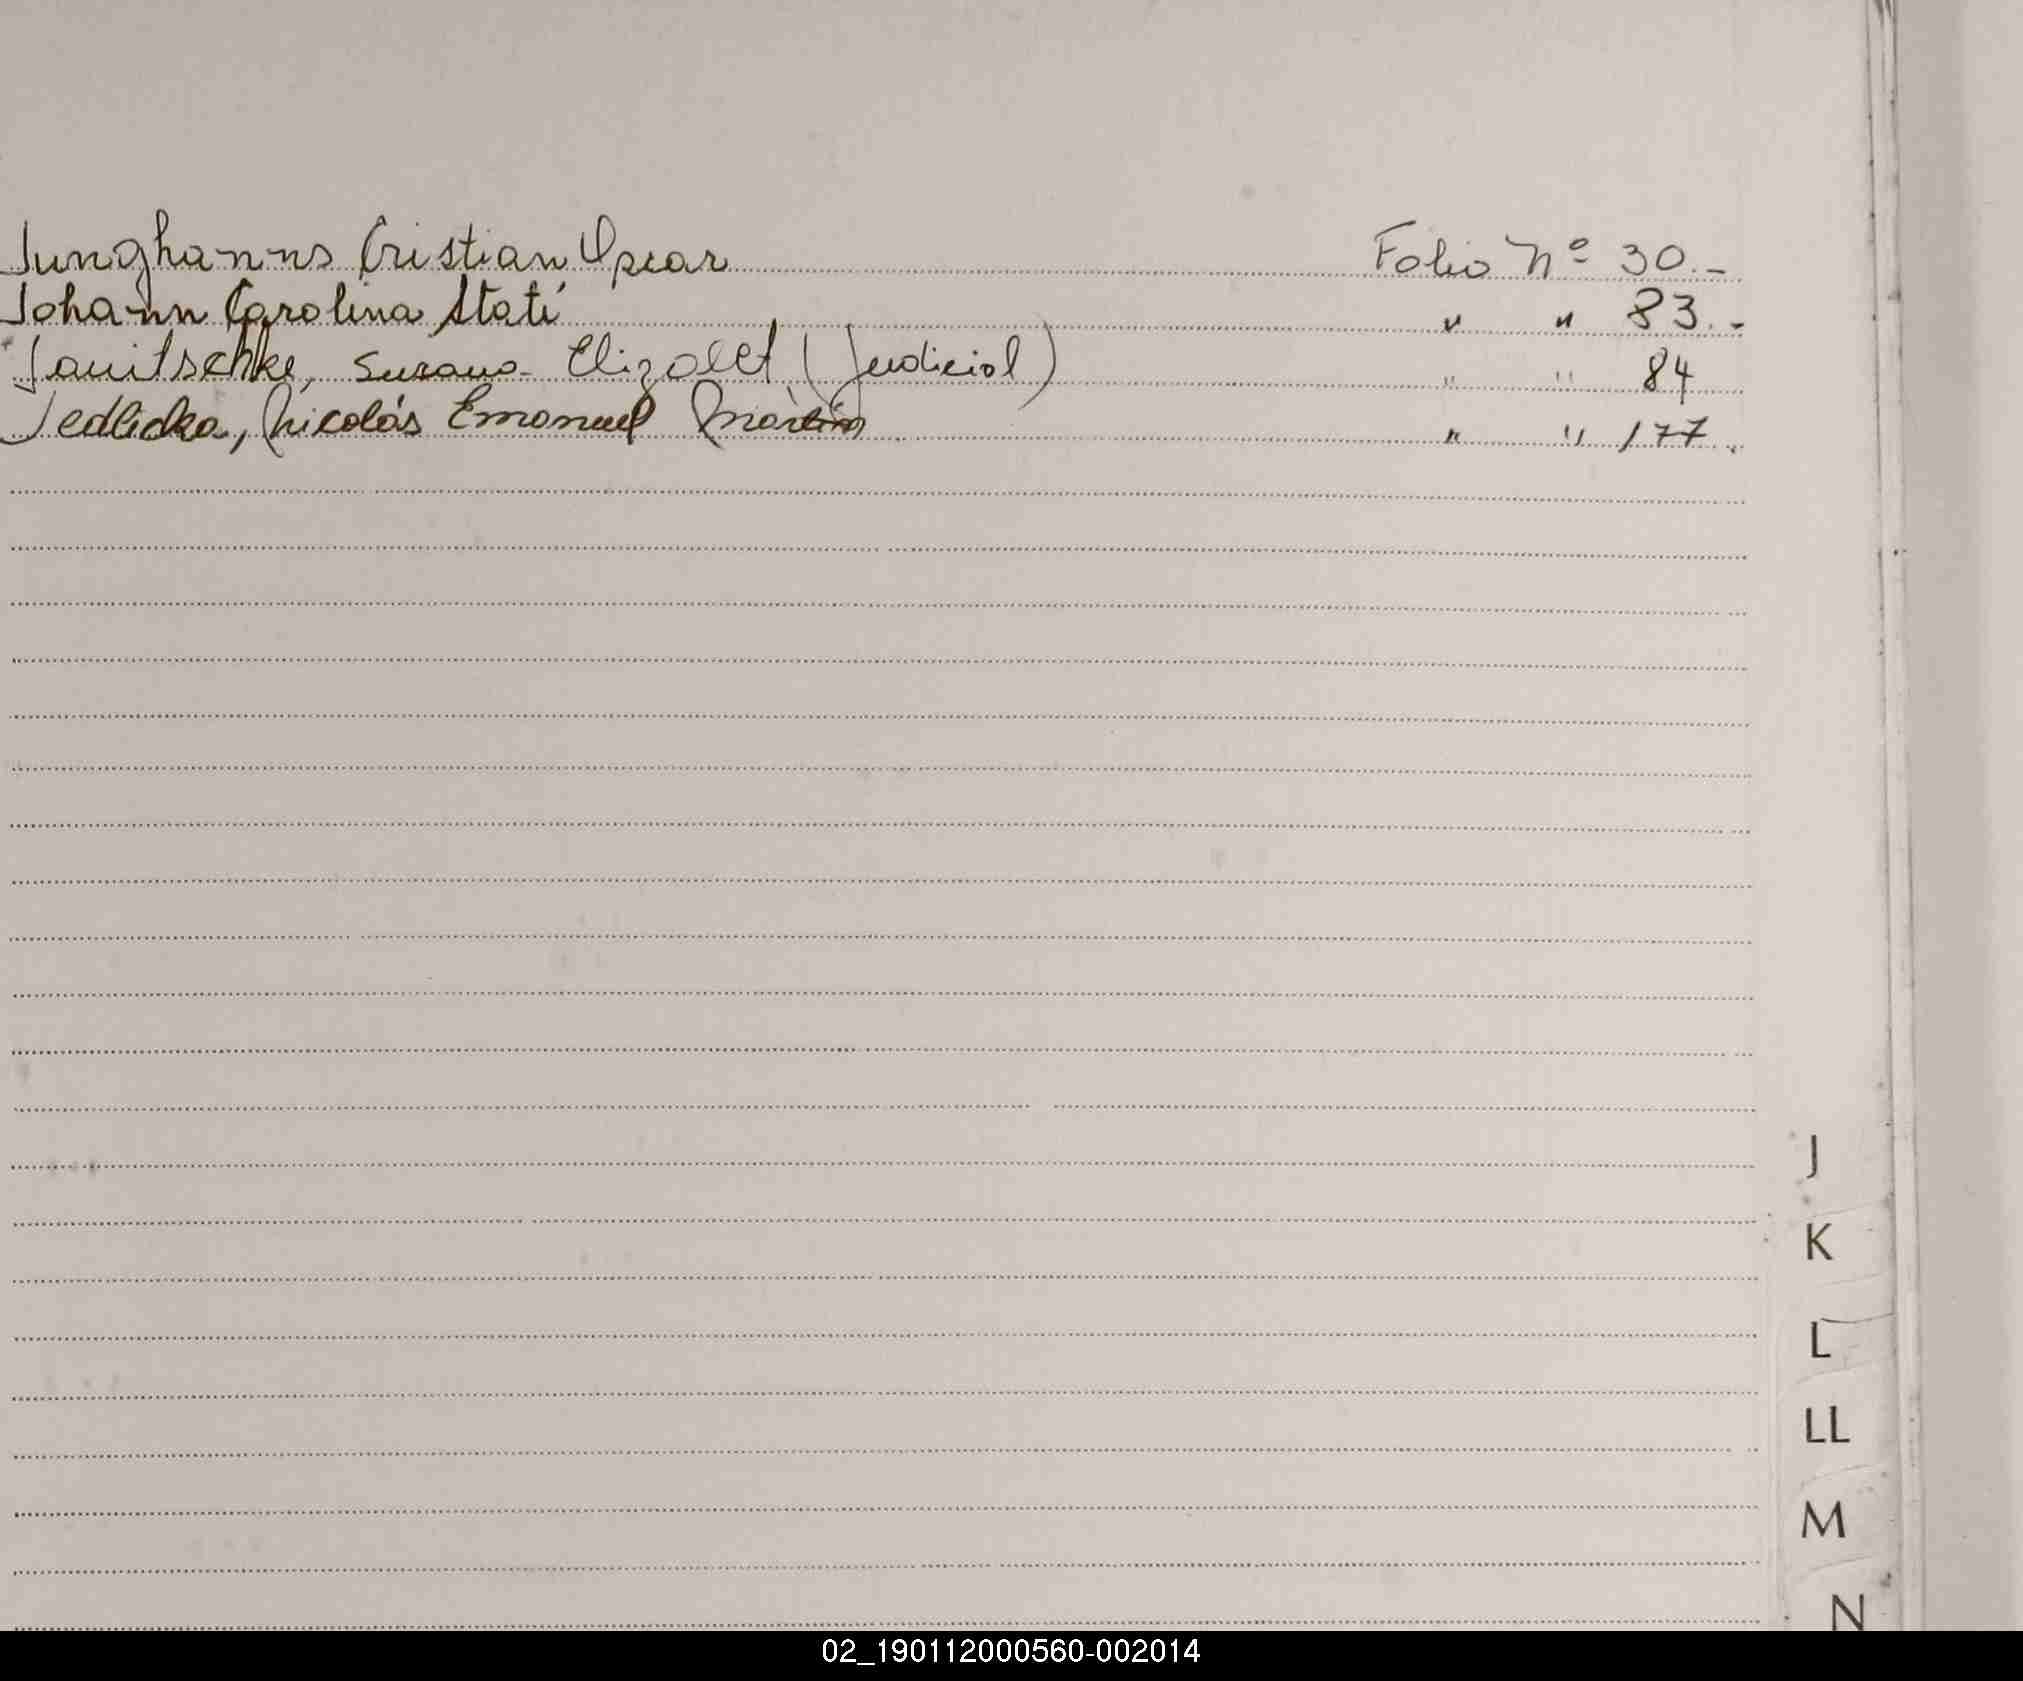 Junghanns Cristian Oscar Folio Nº 30.-
Johann Carolina Itatí " " 83.-
Janitschke, Susana Elizabet (Judicial) " " 84
Jedlicka, Nicolás Emanuel Martín " " 177.
J
K
L
LL
M
N
02_190112000560-002014